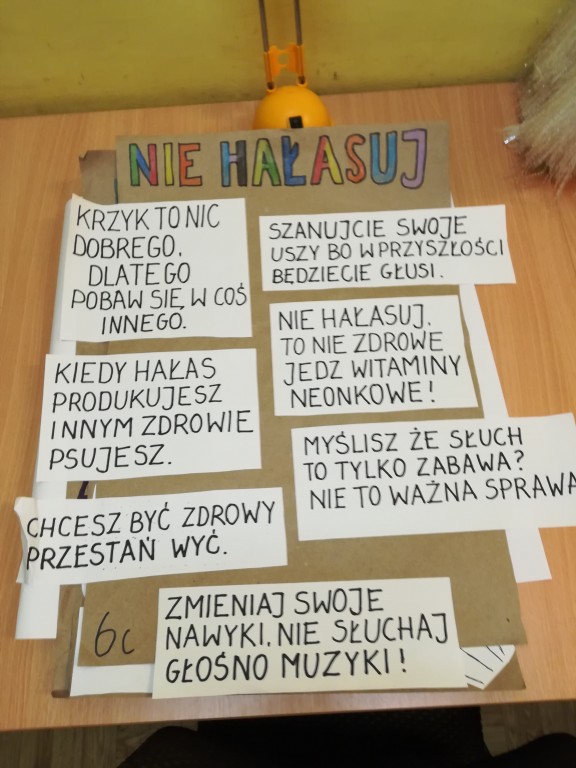 NIE HAŁASUJ
KRZYK TO NIC
DOBREGO,
DLATEGO
POBAW SIĘ W COŚ
INNEGO.
SZANUJCIE SWOJE
USZY BO W PRZYSZŁOŚCI
BĘDZIECIE GŁUSI.
NIE HAŁASUJ,
TO NIE ZDROWE
JEDZ WITAMINY
NEONKOWE!
KIEDY HAŁAS
PRODUKUJESZ
INNYM ZDROWIE
PSUJESZ.
MYŚLISZ ŻE SŁUCH
TO TYLKO ZABAWA?
NIE TO WAŻNA SPRAWA
CHCESZ BYĆ ZDROWY
PRZESTAŃ WYĆ.
6c
ZMIENIAJ SWOJE
NAWYKI, NIE SŁUCHAJ
GŁOŚNO MUZYKI!